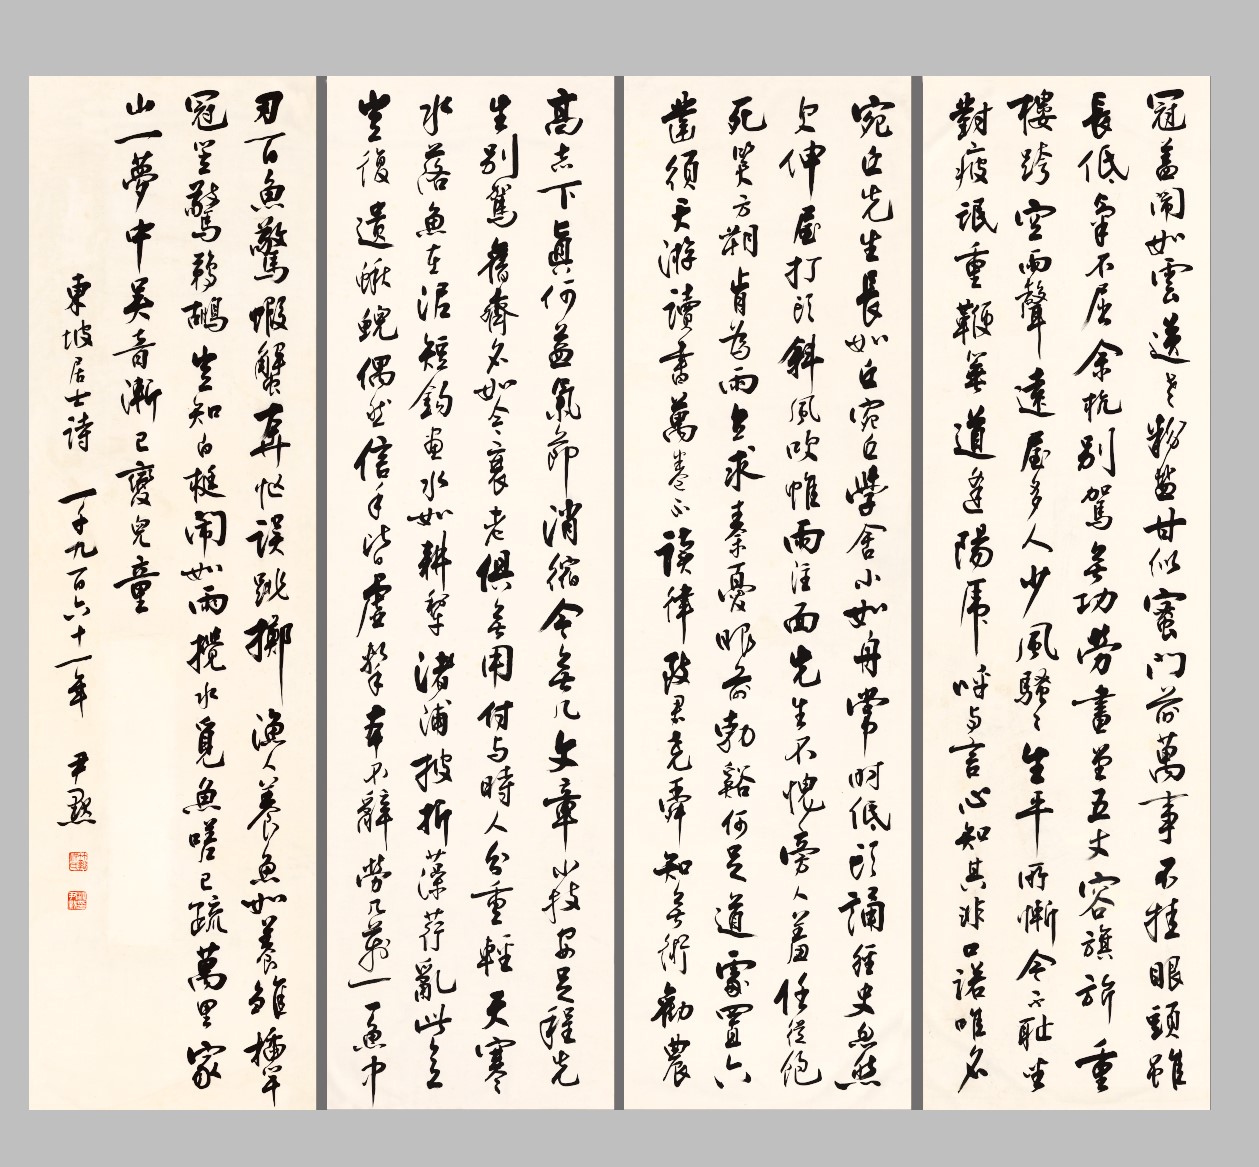 冠蓋鬧如雲送老粉鹽甘似蜜門前萬事不挂眼頭雖
長低氣不屈余杭別駕無功勞畫堂五丈容旗旂重
樓跨空雨聲遠屋多人少風騷〻生平所慚今不恥坐
對疲氓重鞭箠道逢陽虎呼與言心知其非口諾唯居
宛丘先生長如丘宛丘學舍小如舟常時低頭誦經史忽然
欠伸屋打頭斜風吹帷雨注面先生不愧旁人羞任從飽
死笑方朔肯為雨立求秦憂眼前勃谿何足道處置六
鑿須天游讀書萬卷不讀律致君堯舜知無術勸農
高志下真何益氣節消縮今無幾文章小技安足程先
生別駕舊齊名如今衰老俱無用付與時人分重輕天寒
水落魚在泥短鉤畫水如耕犁渚蒲披折藻荇亂此意
豈復遺鰍鯢偶然信手皆虛擊本不辭勞幾萬一一魚中
刃百魚驚蝦蟹奔忙誤跳擲漁人養魚如養雛插竿
冠笠驚鵜鶘豈知白梃鬧如雨攪水覓魚嗟已疏萬里家
山一夢中吳音漸已變兒童
東坡居士詩 一千九百六十一年 尹默